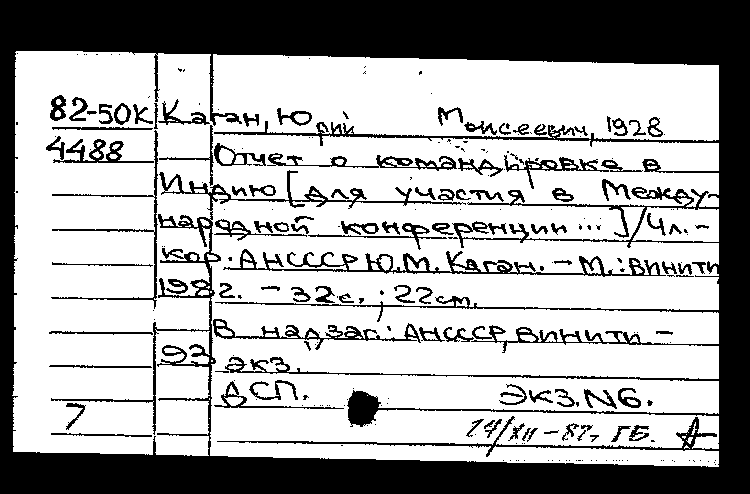 82-50К Каган, Юрий Моисеевич, 1928
4488 Отчет о командировке в
Индию [для участия в Между-
народной конференции ...]/Чл.-
кор. АНСССР Ю.М. Каган. - М.: ВИНИТИ,
1982. - 32с. ; 22см.
В надзаг.: АНСССР, ВИНИТИ -
93 экз.
ДСП. Экз.N6.
7 /XII-82г. ГБ. А